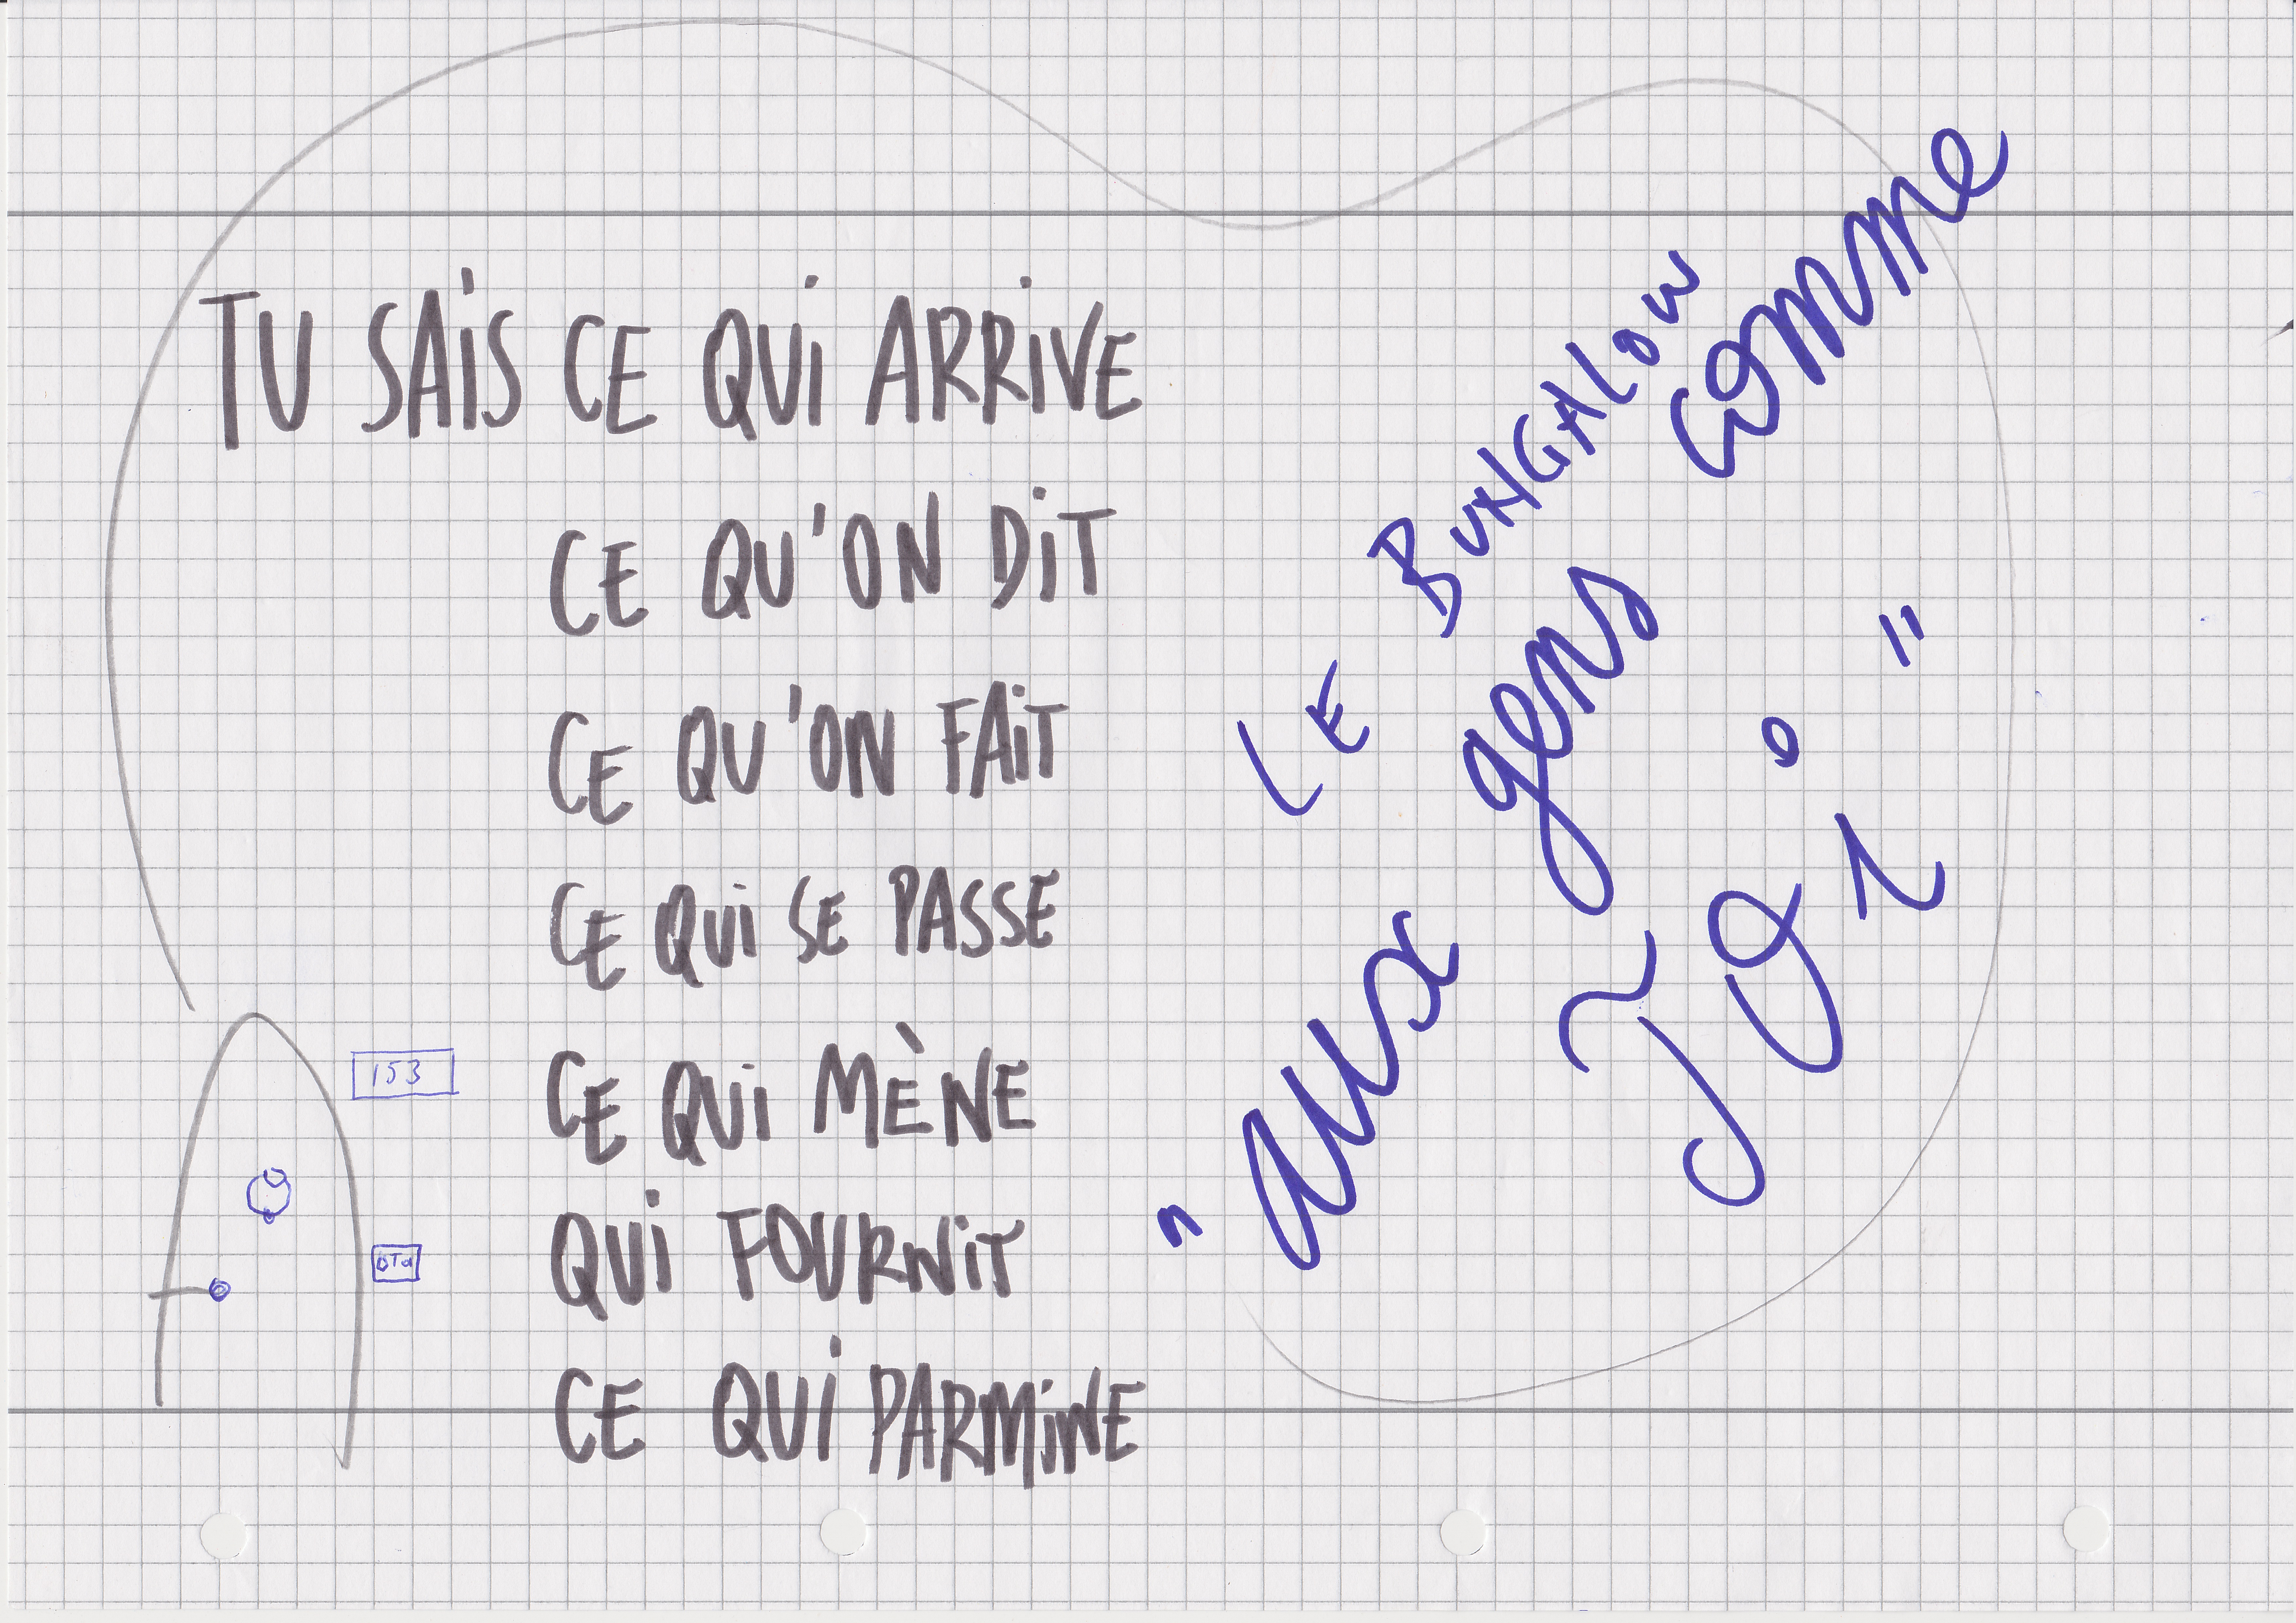 TU SAIS CE QUI ARRIVE
CE QU'ON DIT
CE QU'ON FAIT
CE QUI SE PASSE
CE QUI MÈNE
QUI FOURNIT
CE QUI PARMINE
153
LE BUNGALOW
"aux gens comme
TOi"